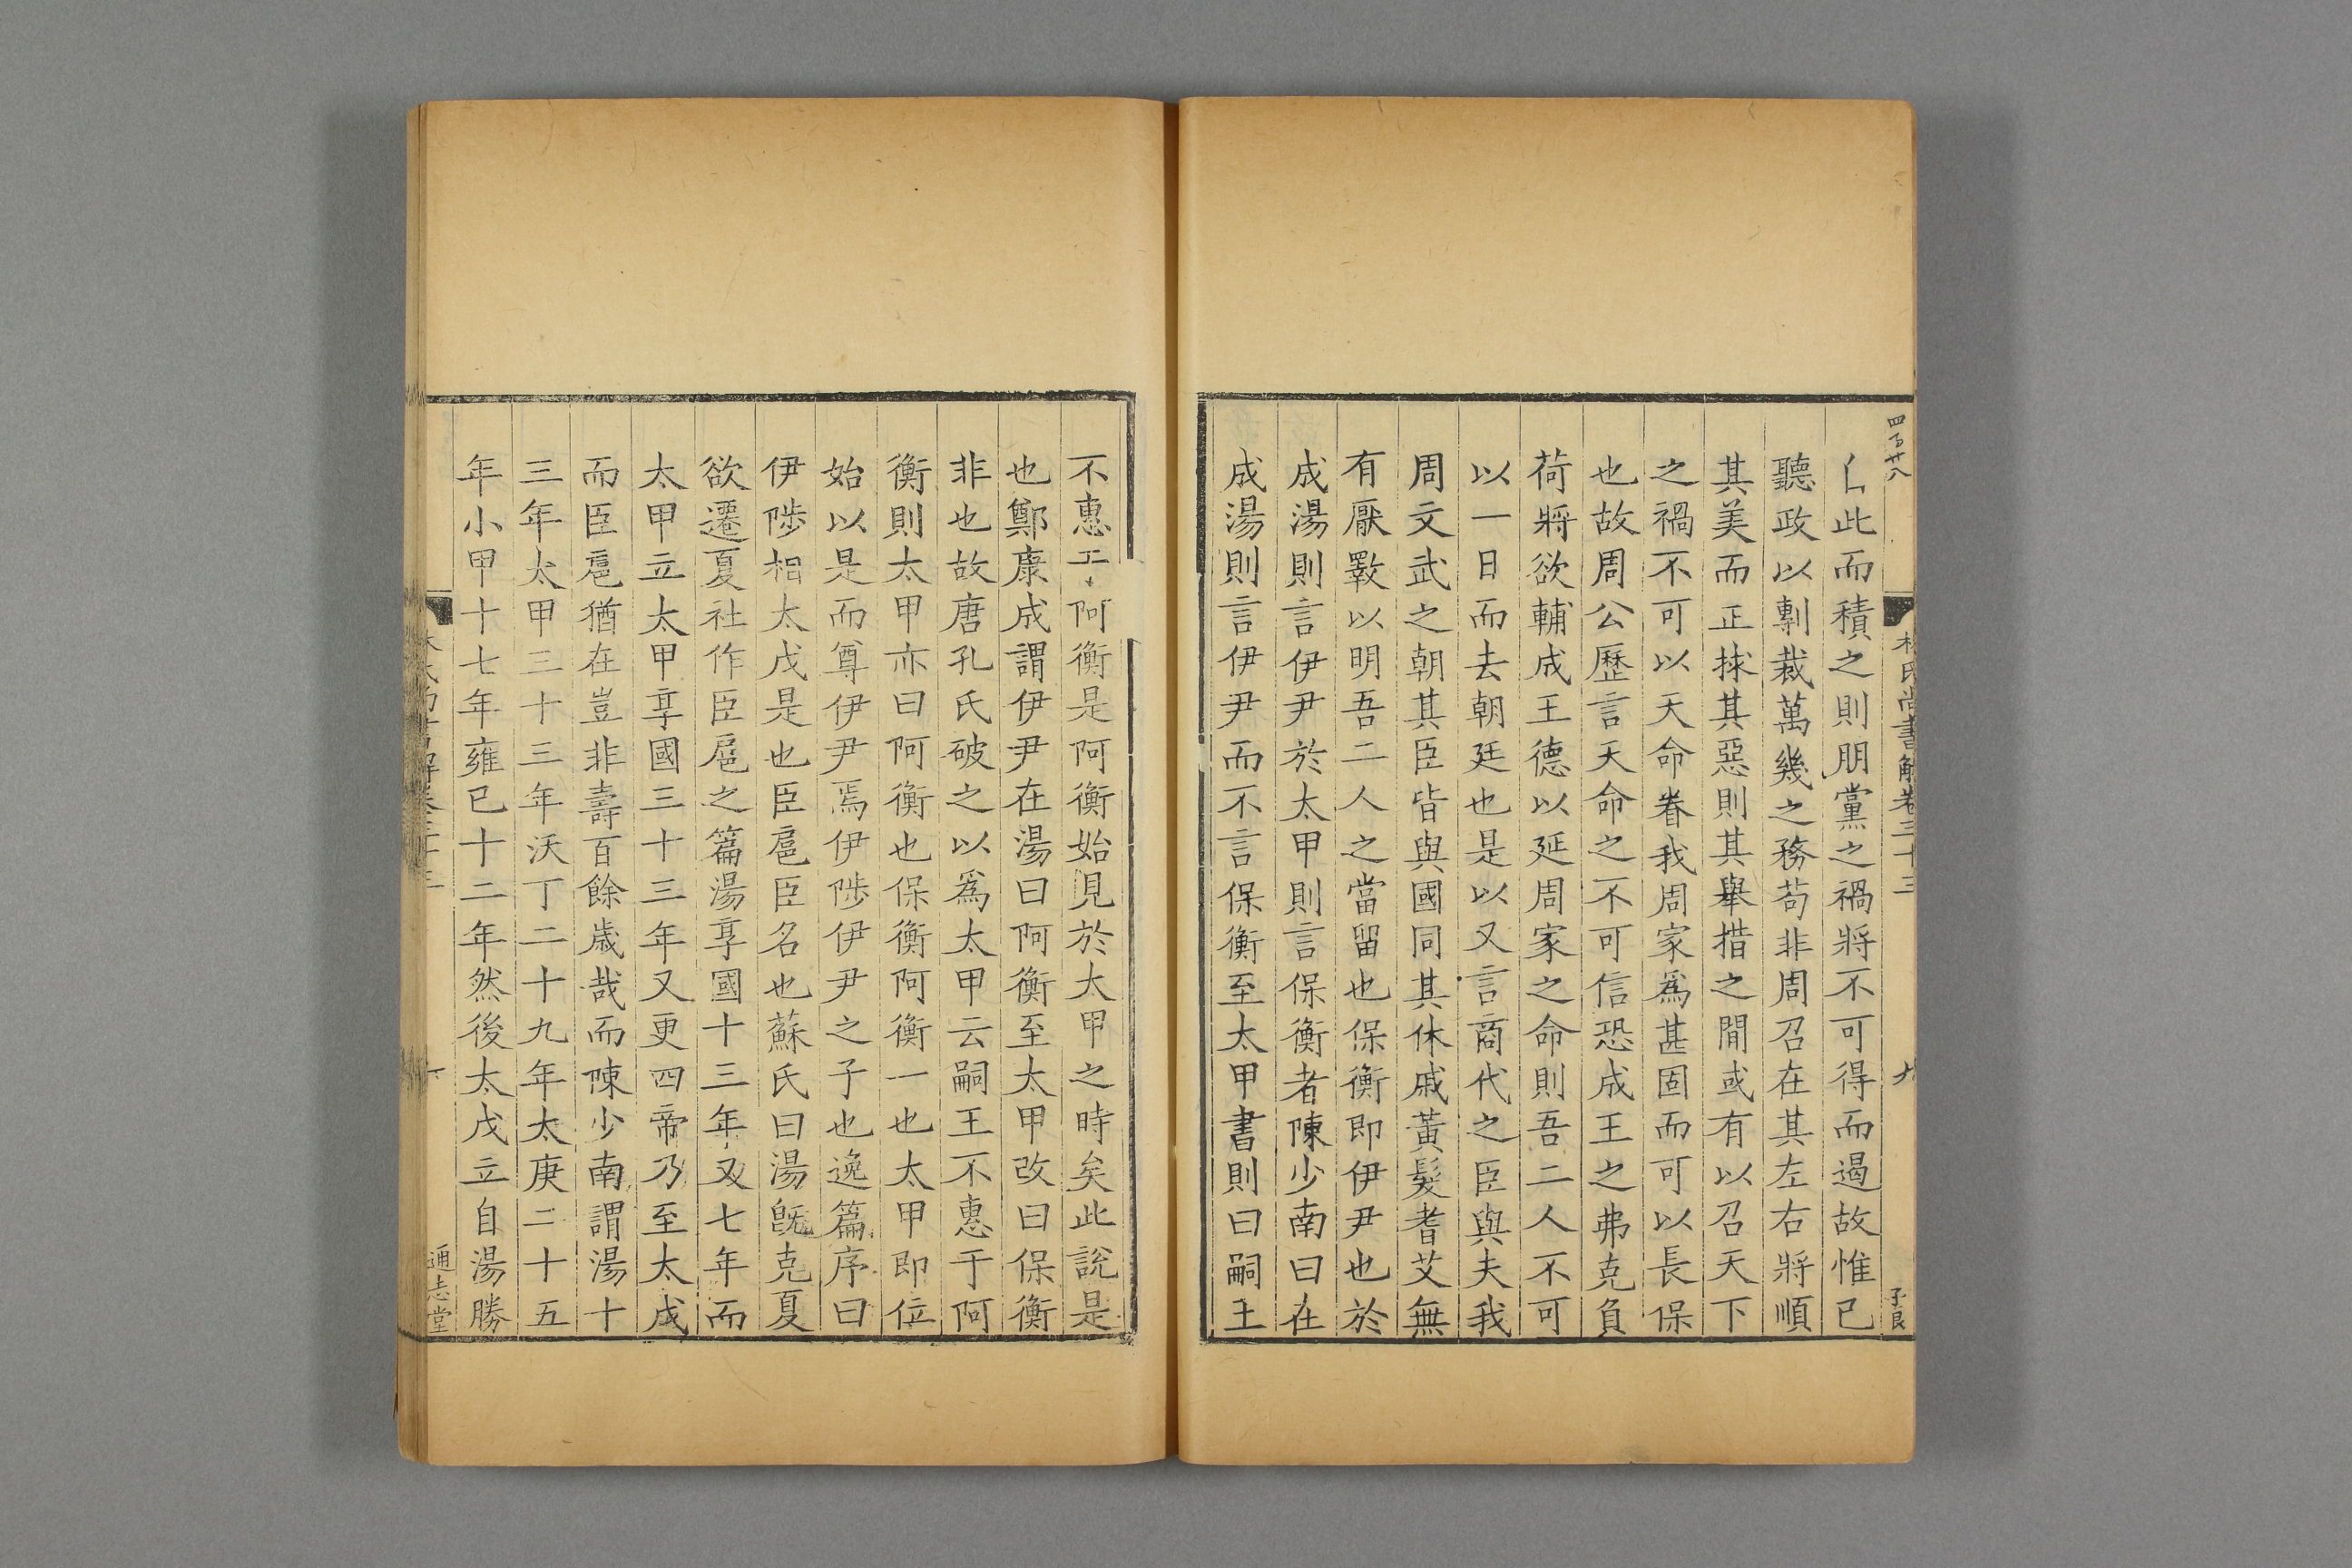 四百廿八
林氏尚書解卷三十三
九
子良
此而積之則朋黨之禍將不可得而遏故惟已
聽政以剸裁萬幾之務苟非周召在其左右將順
其美而正捄其惡則其舉措之間或有以召天下
之禍不可以天命眷我周家爲甚固而可以長保
也故周公歷言天命之不可信恐成王之弗克負
荷將欲輔成王德以延周家之命則吾二人不可
以一日而去朝廷也是以又言商代之臣與夫我
周文武之朝其臣皆與國同其休戚黃髮耆艾無
有厭斁以明吾二人之當留也保衡即伊尹也於
成湯則言伊尹於太甲則言保衡者陳少南曰在
成湯則言伊尹而不言保衡至太甲書則曰嗣王
不惠于阿衡是阿衡始見於太甲之時矣此說是
也鄭康成謂伊尹在湯曰阿衡至太甲改曰保衡
非也故唐孔氏破之以爲太甲云嗣王不惠于阿
衡則太甲亦曰阿衡也保衡阿衡一也太甲即位
始以是而尊伊尹焉伊陟伊尹之子也逸篇序曰
伊陟相太戊是也臣扈臣名也蘇氏曰湯旣克夏
欲遷夏社作臣扈之篇湯享國十三年又七年而
太甲立太甲享國三十三年又更四帝乃至太戊
而臣扈猶在豈非壽百餘歲哉而陳少南謂湯十
三年太甲三十三年沃丁二十九年太庚二十五
年小甲十七年雍已十二年然後太戊立自湯勝
通志堂